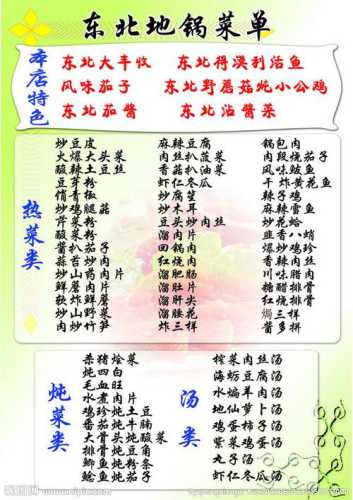 东北地锅菜单
本店特色
东北大丰收 东北得漠利活鱼
风味茄子 东北野蘑菇炖小公鸡
东北茄酱 东北沾酱菜
热菜类
炒豆皮
火爆大头菜
酸辣土豆丝
豆芽粉
俏青椒
炒鸡腿菇
芹菜粉
酸菜粉
酱扒茄子
蒜苔炒肉
炒山药肉片
炸鲜蘑
软炸鲜蘑
炒肉炒竹笋
麻辣豆腐
肉丝扒菠菜
香菇扒油菜
虾仁冬瓜
炒腐笙
炒木耳
豆头炒肉丝
溜肉片
回锅肉
红烧肉
溜肥肠
溜肚片
溜肝尖
溜腰花
炸三样
锅包肉
肉段烧茄子
风味鲅鱼
干炸黄花鱼
辣子鸡
麻辣雷鱼
炒花蛤
韭香八蛸
爆炒鸡珍
香辣肉丝
川味腊肉
糖醋排骨
红烧排骨
焗三样
酱多拼
炖菜类
杀猪烩菜
炖四白
毛血旺
水煮肉片
鸡珍炖土豆
番茄炖牛腩
大骨头炖酸菜
排骨炖豆角
鲫鱼炖粉条
鲶鱼炖茄子
汤类
榨菜肉丝汤
海蛎豆腐汤
水煸羊肉汤
地仙萝卜汤
鸡蛋柿子汤
紫菜鸡蛋汤
丸子汤
虾仁冬瓜汤